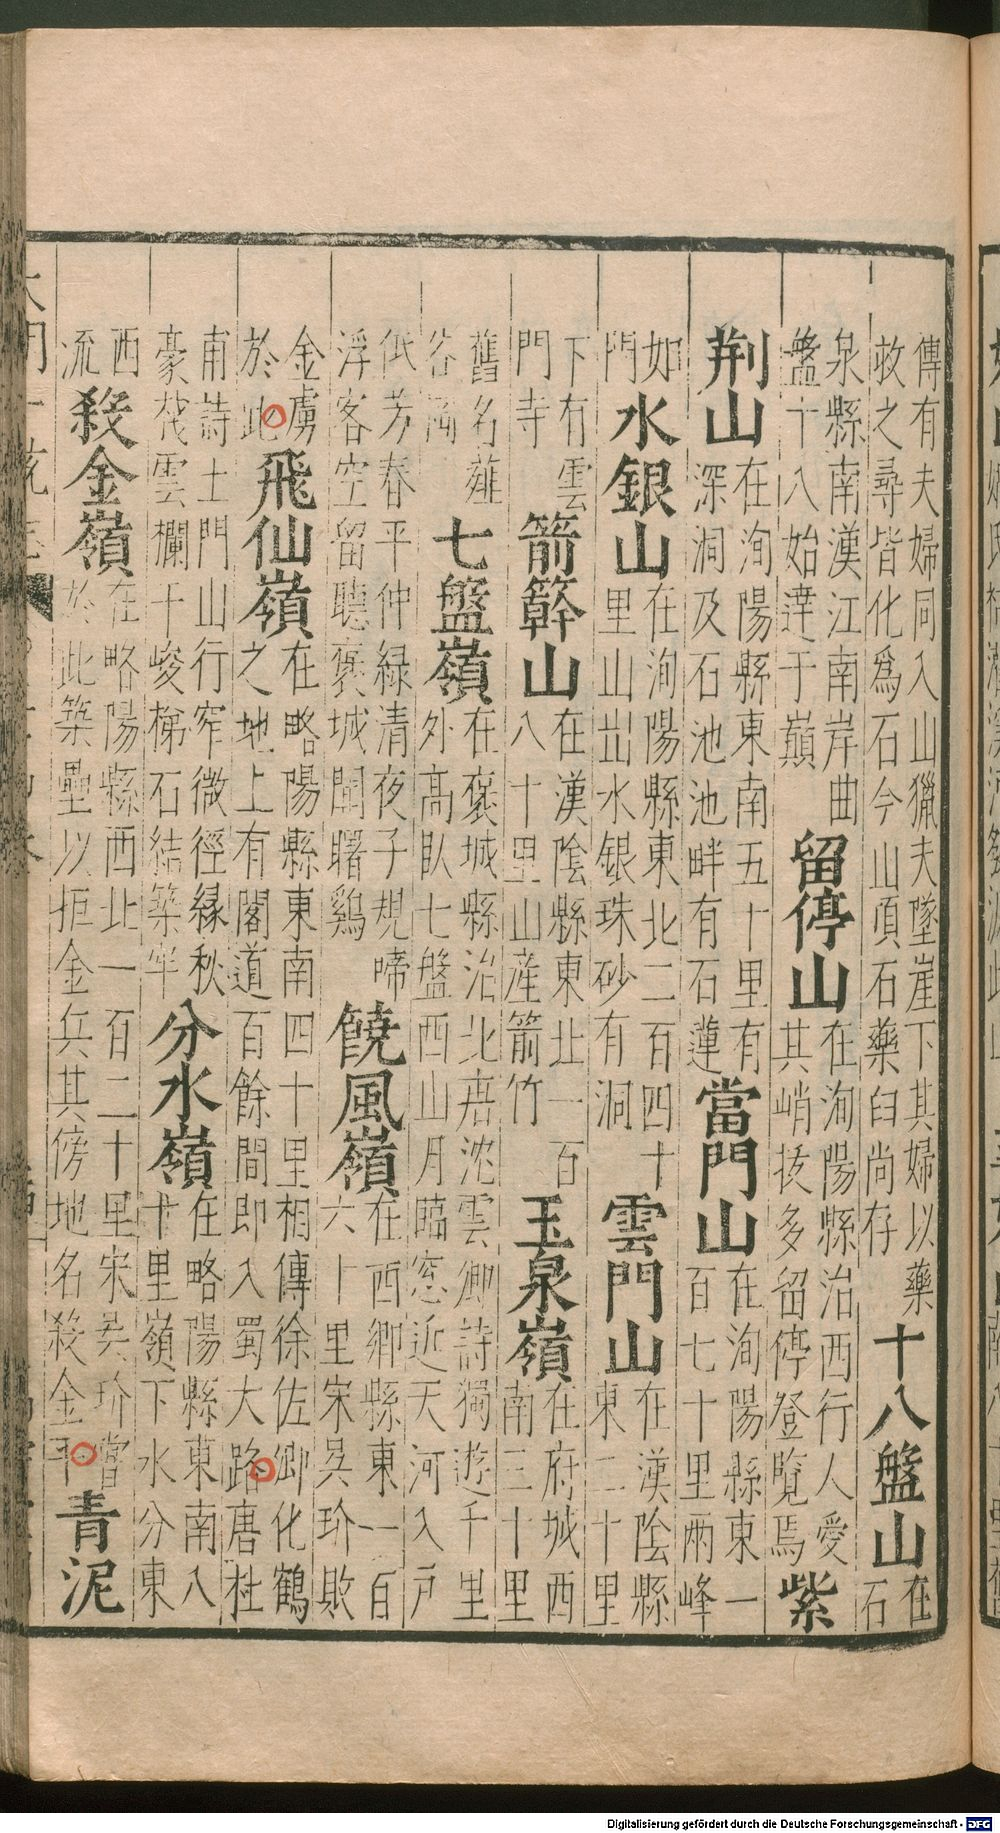 傳有夫婦同入山獵夫墜崖下其婦以藥
救之尋皆化爲石今山頂石藥臼尚存
十八盤山
在
石
泉縣南漢江南岸曲
盤十八始達于巔
留停山
在洵陽縣治西行人愛
其峭拔多留停登覽焉
紫
荆山
在洵陽縣東南五十里有
深洞及石池池畔有石蓮
當門山
在洵陽縣東一
百七十里兩峰
如
門
水銀山
在洵陽縣東北二百四十
里山出水銀珠砂有洞
雲門山
在漢陰縣
東二十里
下有雲
門寺
箭簳山
在漢陰縣東北一百
八十里山産箭竹
玉泉嶺
在府城西
南三十里
舊名薤
七盤嶺
在褒城縣治北唐沈雲卿詩獨遊千里
外高臥七盤西山月臨窓近天河入戸
低芳春平仲緑清夜子規啼
浮客空留聽褒城聞曙鷄
饒風嶺
在西郷縣東一百
六十里宋吳玠敗
金虜
於此
飛仙嶺
在略陽縣東南四十里相傳徐佐卿化鶴
之地上有閣道百餘間即入蜀大路唐杜
甫詩土門山行窄微徑縁秋
豪棧雲欄干峻梯石結築牢
分水嶺
在略陽縣東南八
十里嶺下水分東
西
流
殺金嶺
在略陽縣西北一百二十里宋吳玠當
於此築壘以拒金兵其傍地名殺金平
青泥
Digitalisierung gefördert durch die Deutsche Forschungsgemeinschaft - DFG